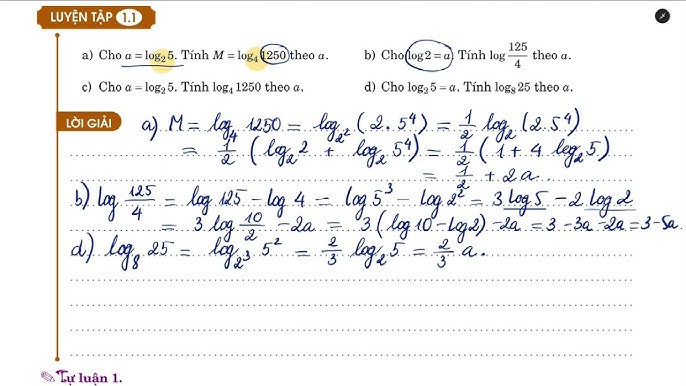 LUYỆN TẬP 1.1
a) Cho a = log₂5. Tính M = log₄1250 theo a. b) Cho log2 = a. Tính log 125/4 theo a.
c) Cho a = log₂5. Tính log₄1250 theo a. d) Cho log₂5 = a. Tính log₈25 theo a.
LỜI GIẢI
a) M = log₄ 1250 = log_{2²} (2. 5⁴) = 1/2 log₂ (2 5⁴)
= 1/2 (log₂2 + log₂5⁴) = 1/2 (1 + 4 log₂5)
= 1/2 + 2a.
b) log 125/4 = log 125 - log 4 = log 5³ - log 2² = 3 log 5 - 2 log 2
= 3 log 10/2 - 2a = 3 (log 10 - log 2) - 2a = 3 - 3a - 2a = 3 - 5a.
d) log₈ 25 = log_{2³} 5² = 2/3 log₂5 = 2/3 a.
Tự luận 1.